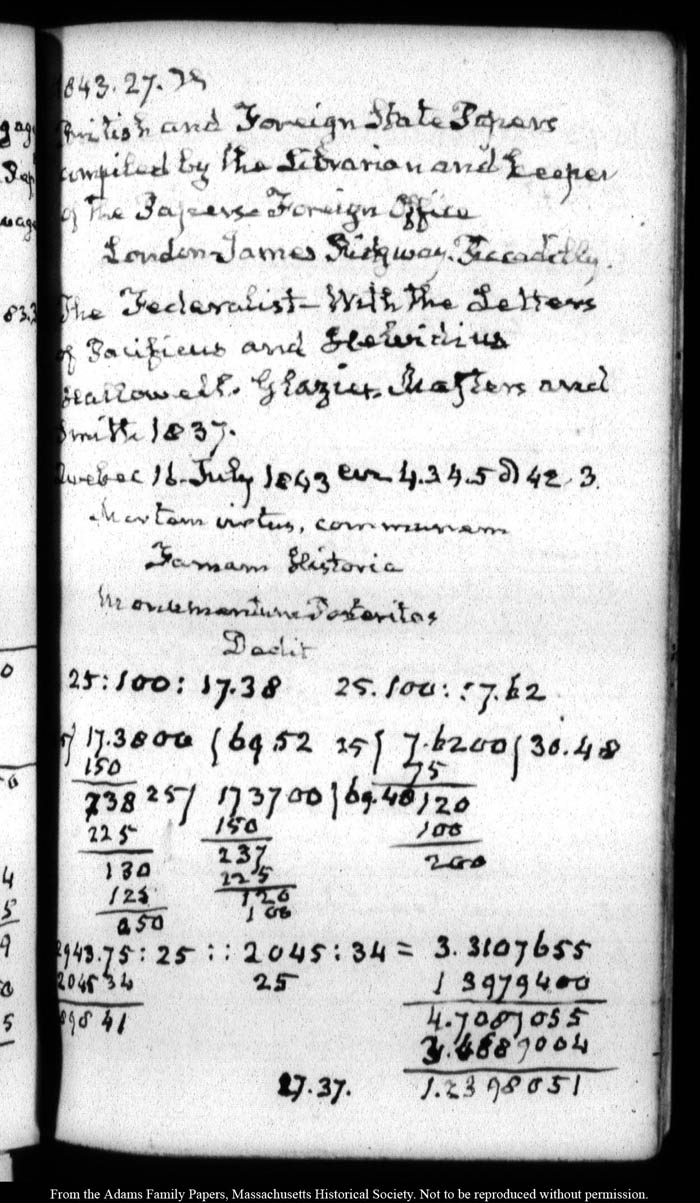 1843. 27.
British and Foreign State Papers
compiled by the Librarian and Keeper
of the Papers Foreign Office
London James Ridgway. Piccadilly.
The Federalist - With the Letters
of Pacificus and Helvidius
Hallowell. Glazier, Masters and
Smith 1837.
Quebec 16. July 1843 4.34.5 42.3.
Mortem virtus, communem
Famam Historia
Monumentum Posteritas
Dedit
25:100: 17.38 25.100: :7.62
17.3800 (69.52 25) 7.6200 (30.48
150 75
238 25) 173700 (69.48 120
225 150 100
130 237 200
125 225
050 120
100
2943.75 : 25 : : 2045 : 34 = 3.3107655
2045 34 25 1 3979400
898 41 4.7087055
3.4689004
27.37. 1.2398051
From the Adams Family Papers, Massachusetts Historical Society. Not to be reproduced without permission.